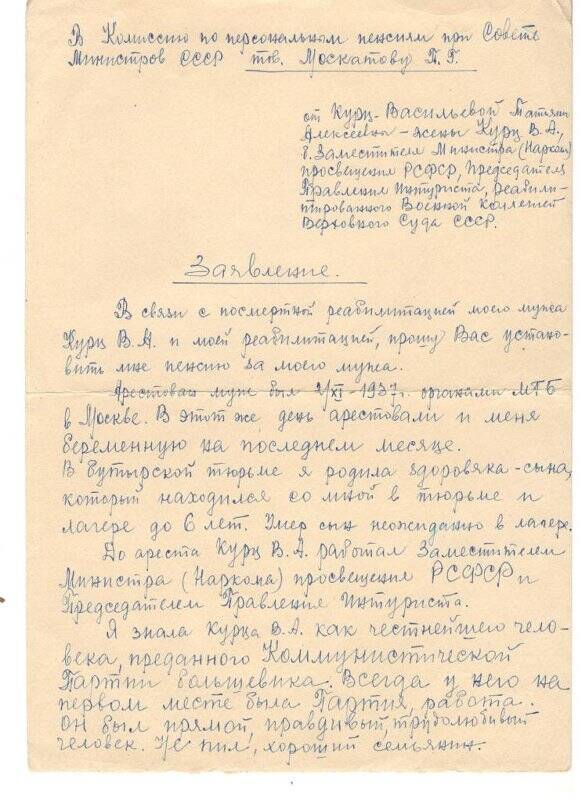 В Комиссию по персональным пенсиям при Совете
Министров СССР тов. Москатову П. Г.
от Курц-Васильевой Татьяны
Алексеевны - жены Курц В. А.,
б. Заместителя Министра (Наркома)
просвещения РСФСР, Председателя
Правления Интуриста, реабили-
тированного Военной коллегией
Верховного Суда СССР.
Заявление.
В связи с посмертной реабилитацией моего мужа
Курц В. А. и моей реабилитацией, прошу Вас устано-
вить мне пенсию за моего мужа.
Арестован муж был 1/XI - 1937 г. органами МГБ
в Москве. В этот же день арестовали и меня
беременную на последнем месяце.
В Бутырской тюрьме я родила здоровяка - сына,
который находился со мной в тюрьме и
лагере до 6 лет. Умер сын неожиданно в лагере.
До ареста Курц В. А. работал Заместителем
Министра (Наркома) просвещения РСФСР и
Председателем Правления Интуриста.
Я знала Курца В. А. как честнейшего чело-
века, преданного Коммунистической
Партии большевика. Всегда у него на
первом месте была Партия, работа.
Он был прямой, правдивый, трудолюбивый
человек. Не пил, хороший семьянин.